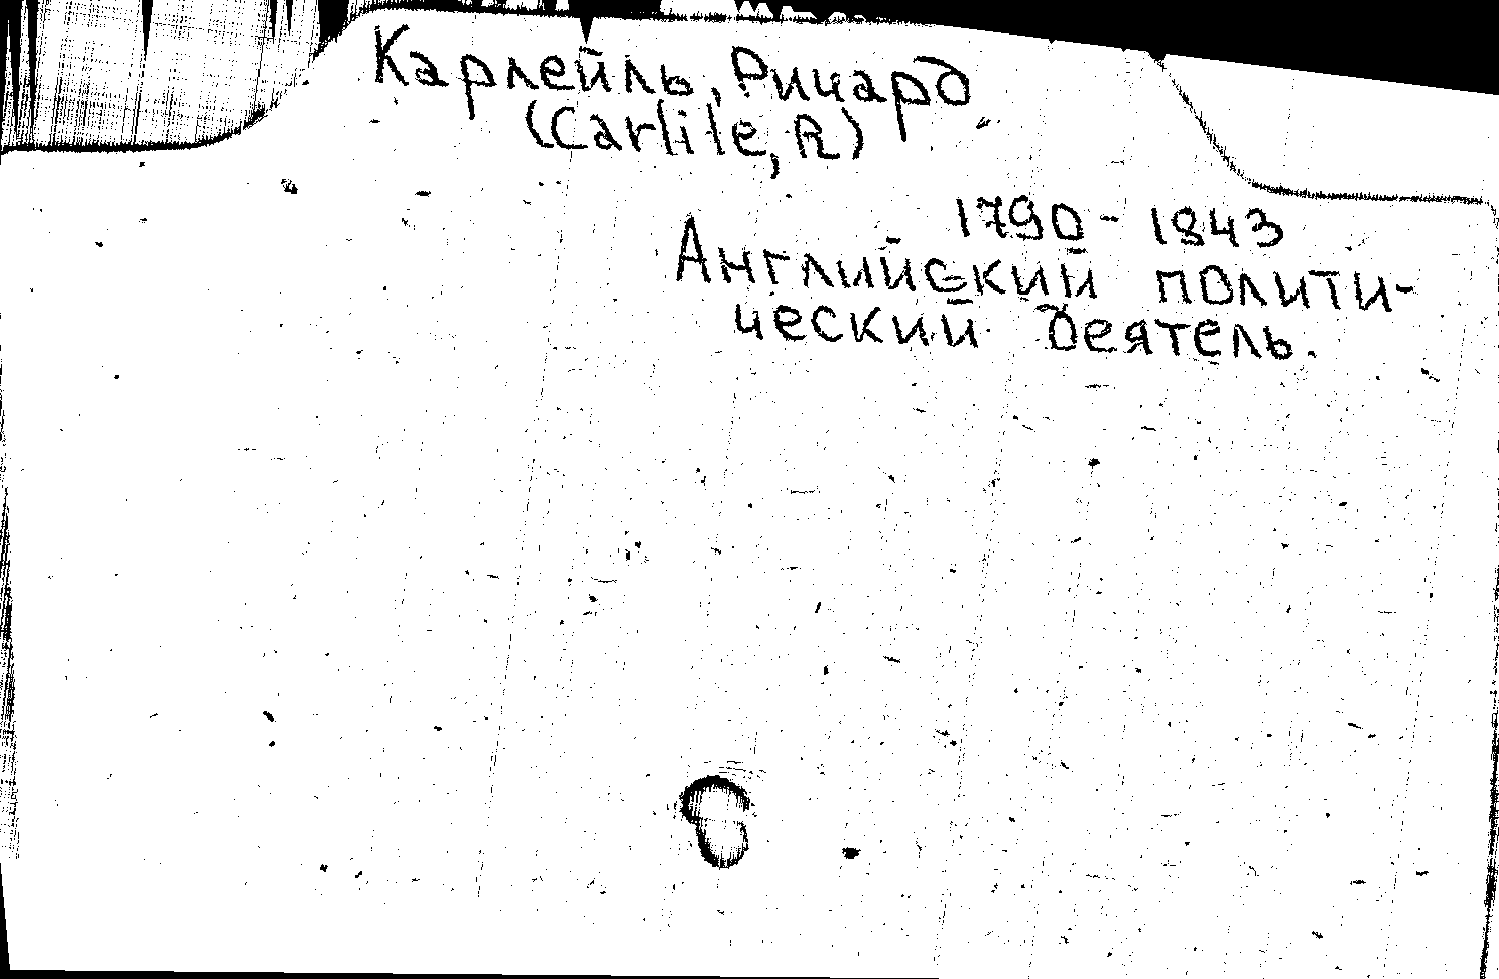 Карлейль, Ричард
(Carlile, R)
1790 - 1843
Английский полити-
ческий деятель.